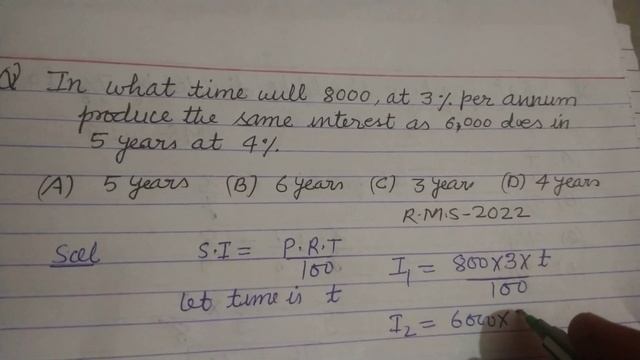 Q In what time will 8000, at 3% per annum
produce the same interest as 6,000 does in
5 years at 4%.
(A) 5 years (B) 6 years (C) 3 year (D) 4 years
R.M.S-2022
Sol S.I = P.R.T / 100
let time is t
I₁ = 800×3×t / 100
I₂ = 6000×